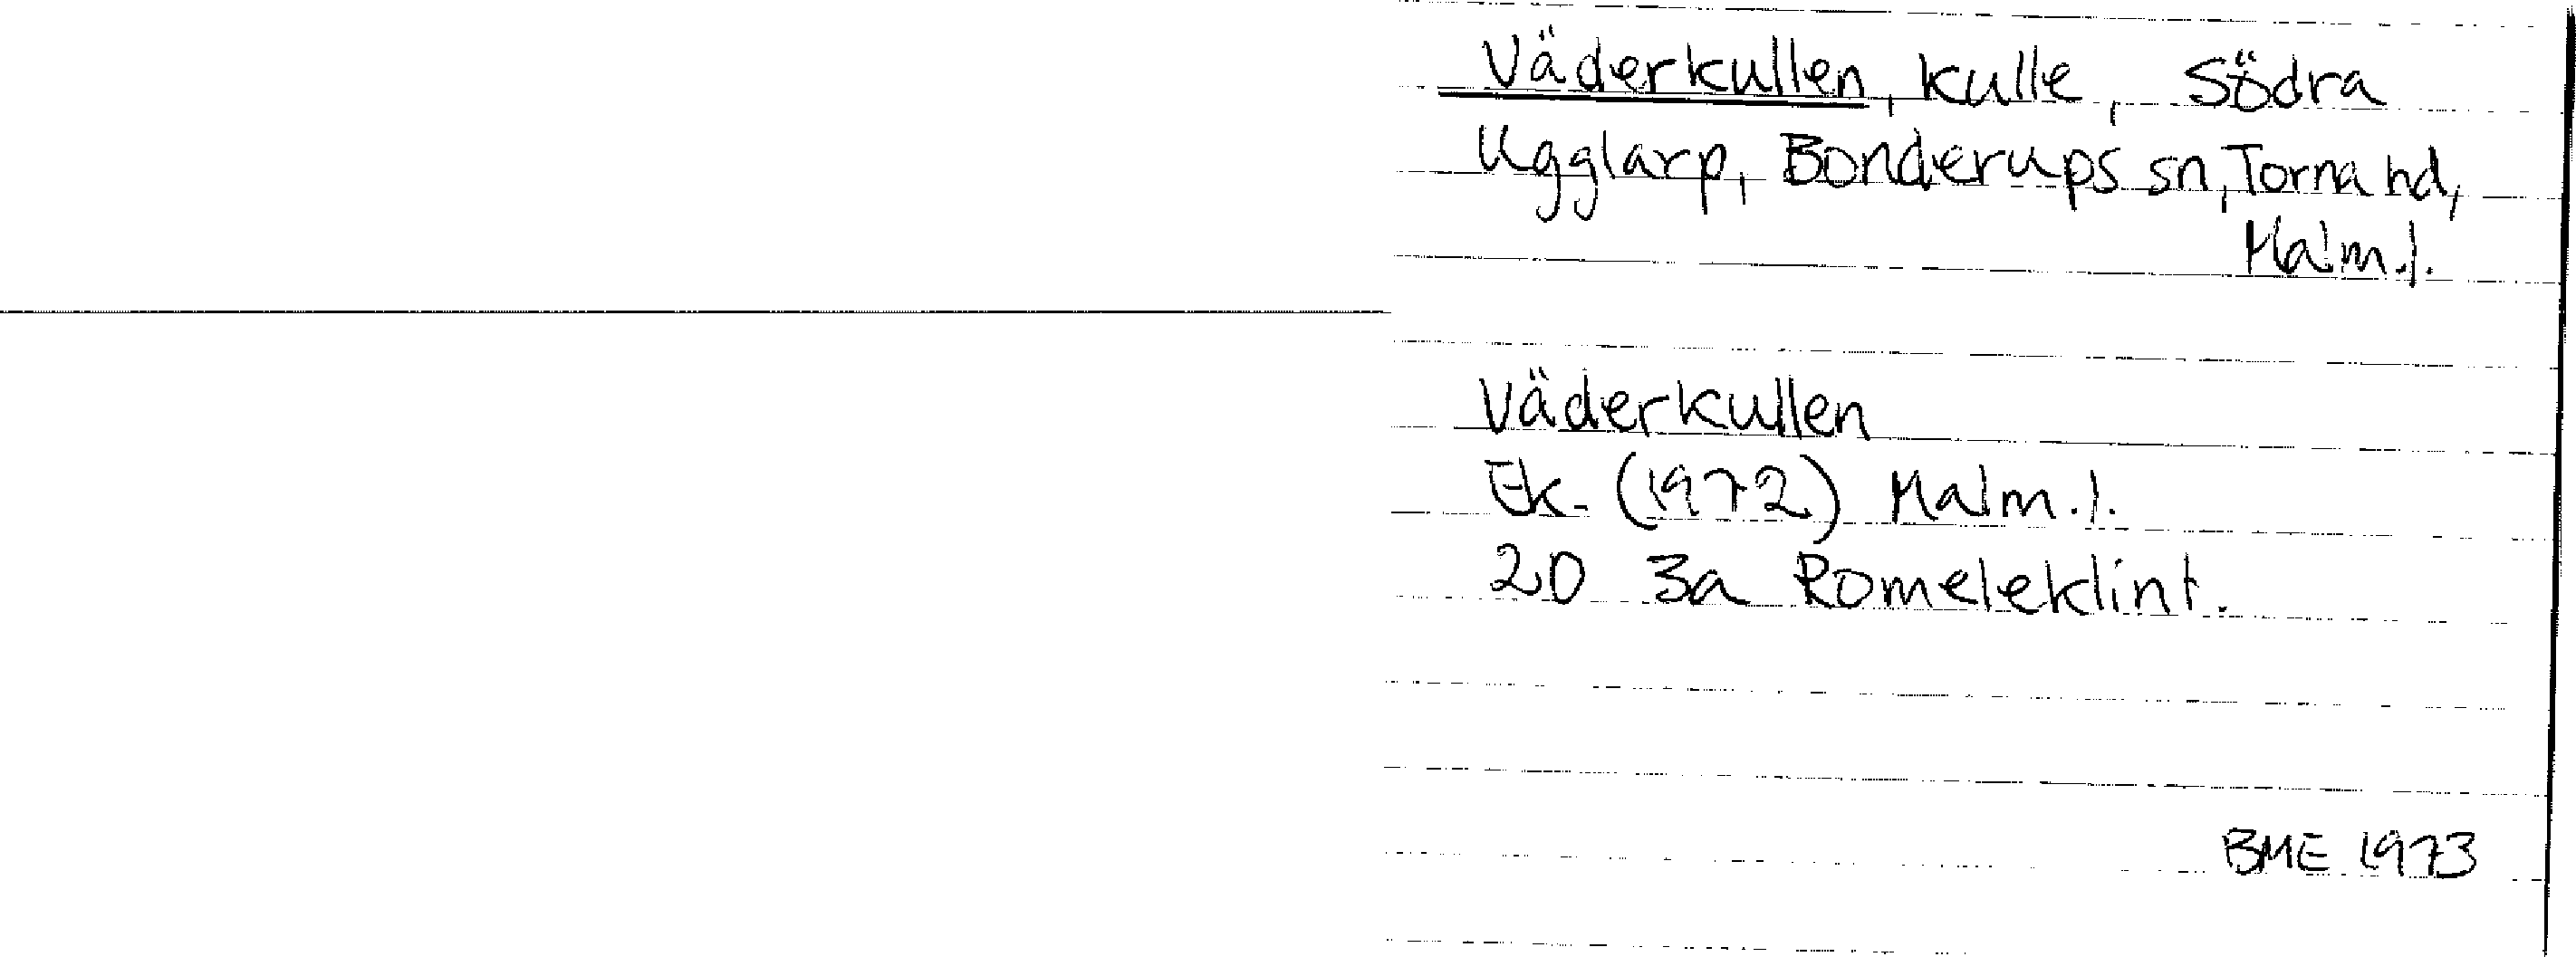 Väderkullen, kulle, Södra
Ugglarp, Bonderups sn, Torna hd,
Malm.l.
Väderkullen
Ek. (1972) Malm.l.
2D 3a Romeleklint.
BME 1973